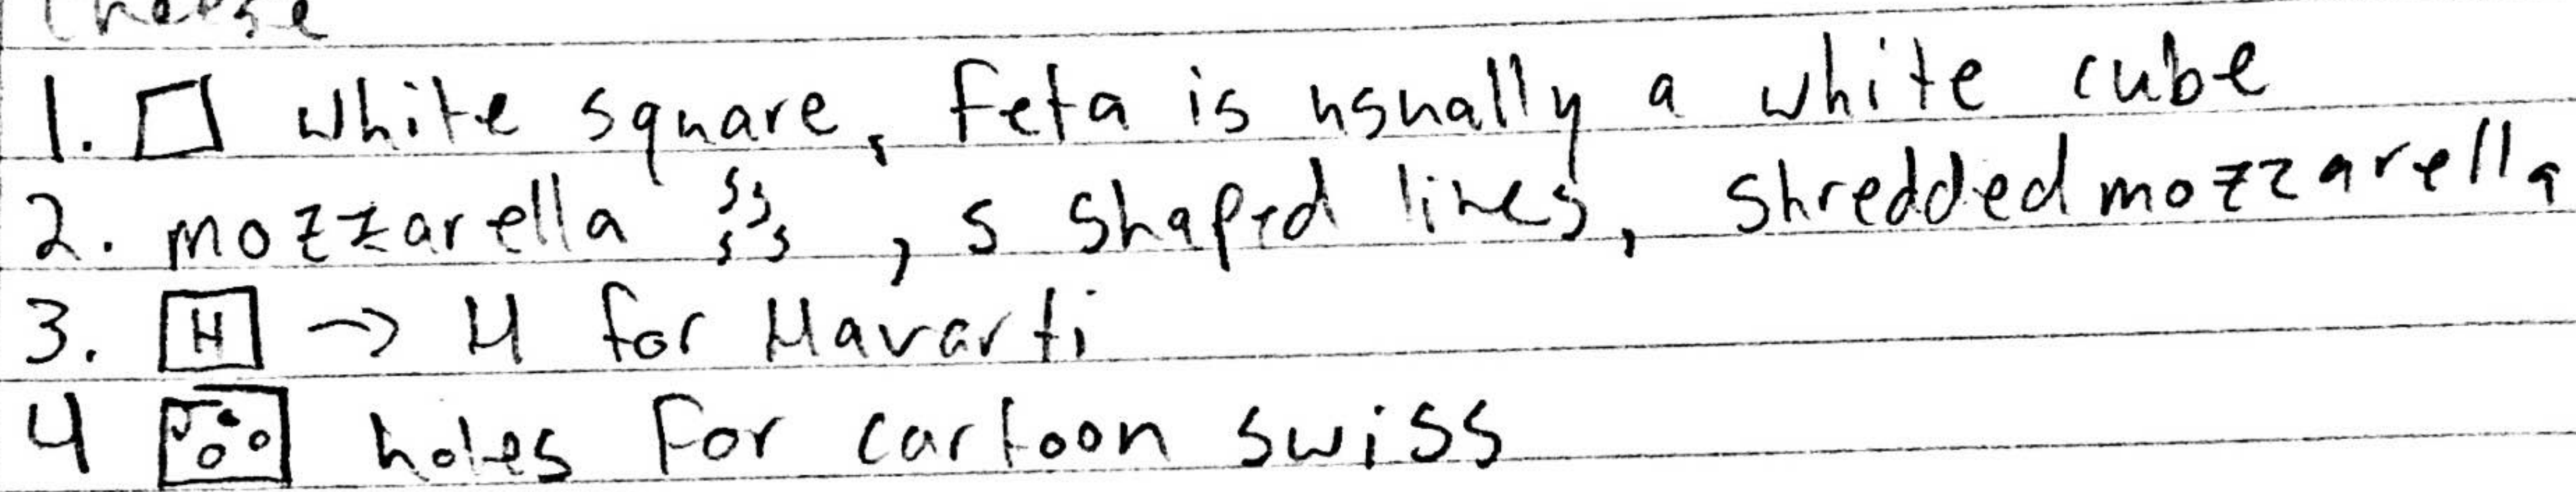 Cheese
1. □ white square, feta is usually a white cube
2. mozzarella sssss, s shaped lines, shredded mozzarella
3. H → H for Havarti
4 holes for cartoon swiss